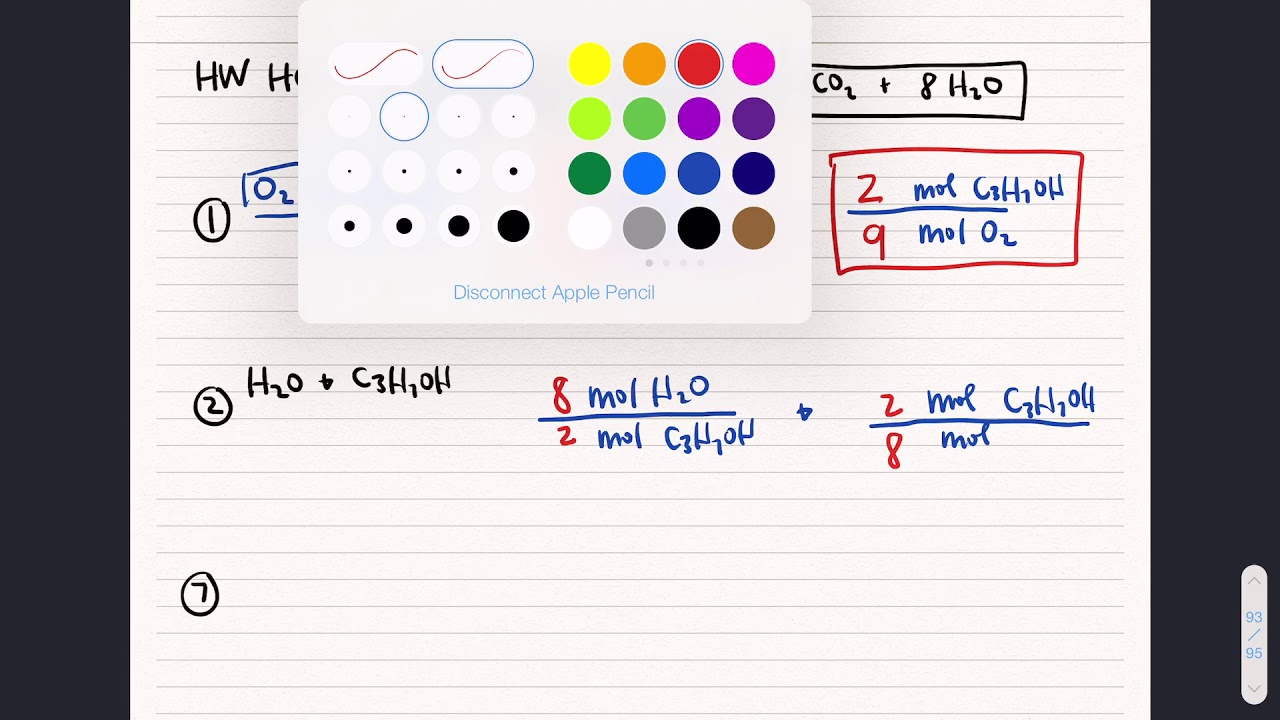 HW
CO₂ + 8 H₂O
① O₂
2 mol C₃H₇OH
9 mol O₂
Disconnect Apple Pencil
② H₂O + C₃H₇OH
8 mol H₂O
2 mol C₃H₇OH
+
2 mol C₃H₇OH
8 mol
⑦
93
/
95